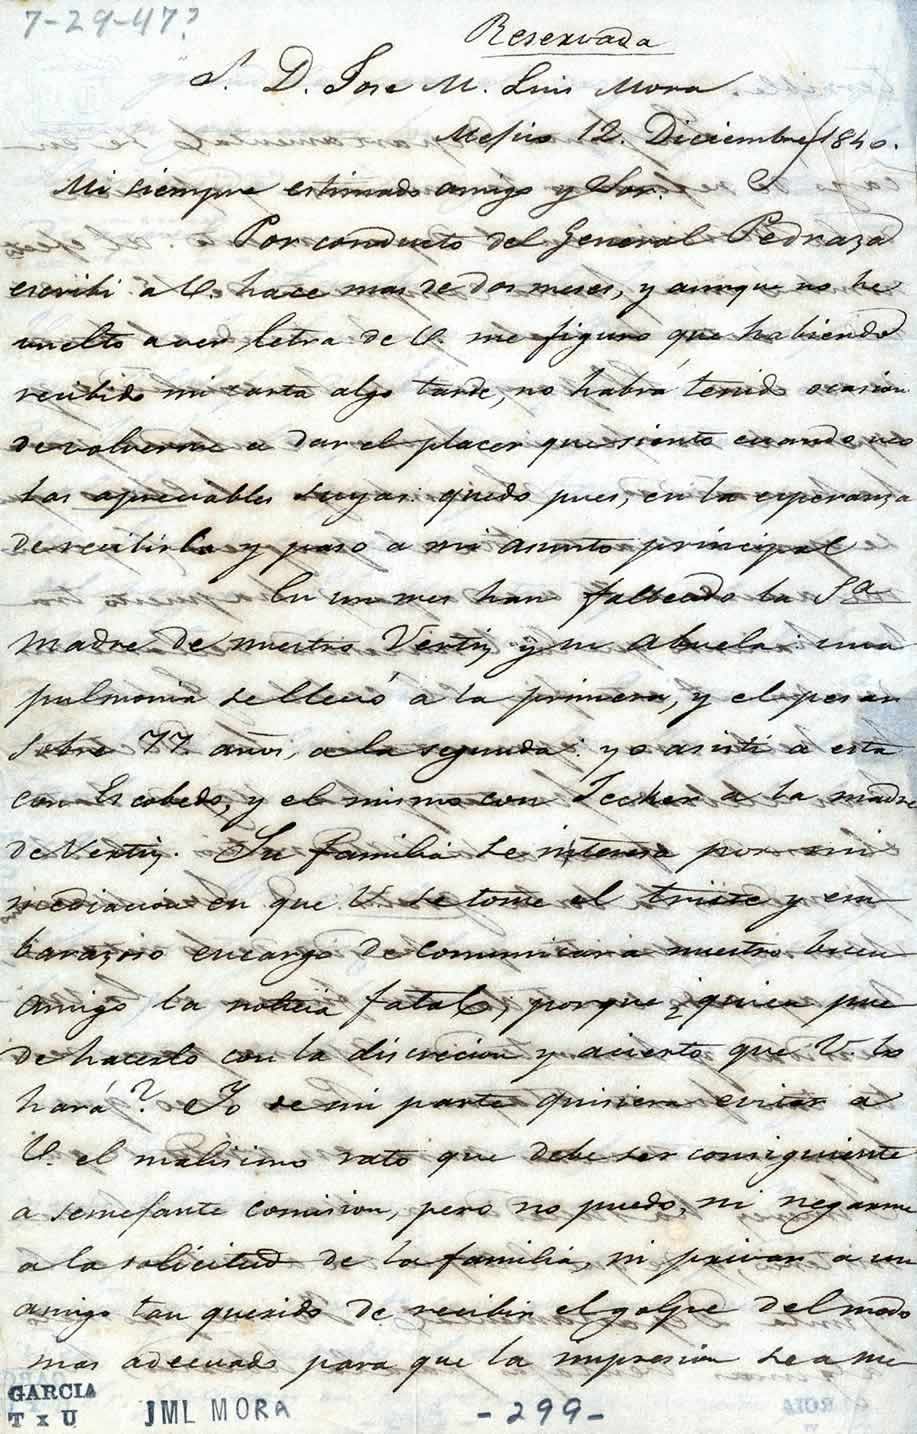 7-29-47?
Reservada
S. D. Jose M. Luis Mora
Mejico 12. Diciembre/1840.
Mi siempre estimado amigo y Sor.
Por conducto del General Pedraza
escribi a V. hace mas de dos meses, y aunque no he
vuelto a ver letra de V. me figuro que habiendo
recibido mi carta algo tarde, no habrá tenido ocasion
de volverme a dar el placer que siento cuando veo
las apreciables suyas: quedo pues, en la esperanza
de recibirla y paso a mi asunto principal
En un mes han falleado la Sa
madre de nuestro Vertiz y su abuela: una
pulmonia se llevó a la primera, y el pesar
sobre 77 años, a la segunda: yo asisti a esta
con Escobedo, y el mismo con Jecker a la madre
de Vertiz. Su familia se interesa por mi
mediacion en que V. se tome el triste y em
barazoso encargo de comunicar a nuestro buen
amigo la noticia fatal, porque ¿quien pue
de hacerlo con la discrecion y acierto que V. lo
hará? Yo de mi parte quisiera evitar a
V. el malisimo rato que debe ser consiguiente
a semejante comision, pero no puedo, ni negarme
a la solicitud de la familia, ni privar a un
amigo tan querido de recibir el golpe del modo
mas adecuado para que la impresion sea me
GARCIA
TxU
JML MORA
-299-